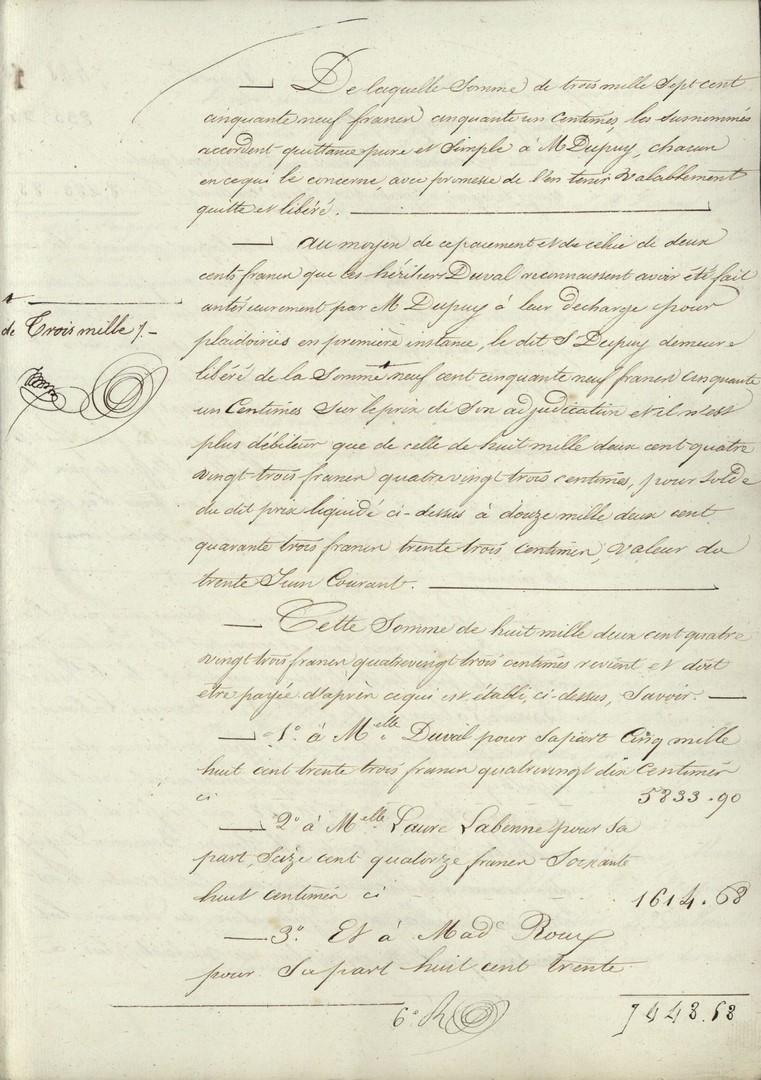 De laquelle Somme de trois mille Sept cent
cinquante neuf francs cinquante un Centimes, les surnommés
accordent quittance pure et Simple à M. Dupuy, chacun
en ce qui le concerne, avec promesse de l'en tenir valablement
quitte et libéré.
au moyen de ce paiement et de celui de deux
cents francs que les héritiers Duval reconnaissent avoir été fait
antérieurement par M. Dupuy à leur décharge pour
de Trois mille /.
plaidoiries en première instance, le dit S. Dupuy demeure
libéré de la Somme + neuf cent cinquante neuf francs cinquante
un Centimes Sur le prix de Son adjudication et il n'est
plus débiteur que de celle de huit mille deux cent quatre
vingt trois francs quatre vingt trois centimes, pour solde
du dit prix liquidé ci-dessus à douze mille deux cent
quarante trois francs trente trois centimes, valeur du
trente Juin Courant.
Cette Somme de huit mille deux cent quatre
vingt trois francs quatrevingt trois centimes revient et doit
être payée d'après ce qui est établi, ci-dessus, Savoir.
1° à M.elle Duval pour sa part Cinq mille
huit cent trente trois francs quatrevingt dix Centimes
ci 5833.90
2° à M.elle Laure Labenne pour sa
part, Seize cent quatorze francs Soixante
huit centimes ci 1614.68
3° Et à Made Roux
pour Sa part huit cent trente
6° R 7448.58